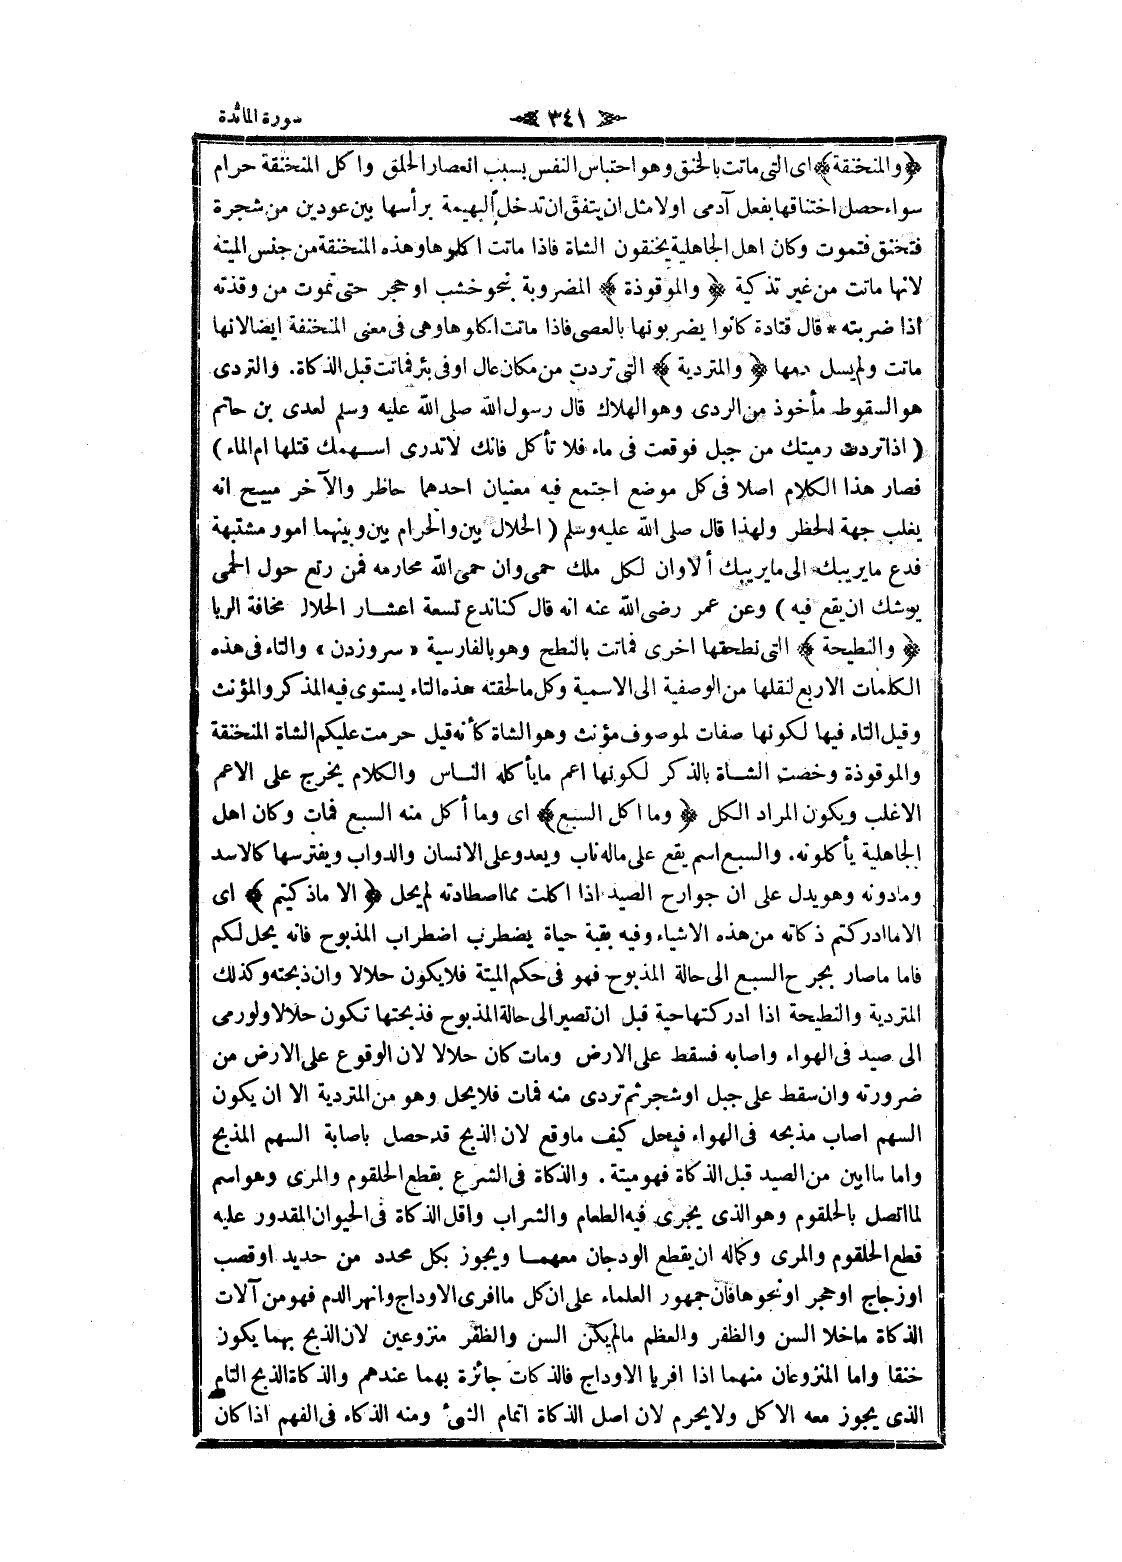 سورة المائدة
٣٤١
﴿ والمنخنقة ﴾ اى التى ماتت بالخنق وهو احتباس النفس بسبب انعصار الحلق واكل المنخنقة حرام
سواء حصل اختناقها بفعل آدمى اولا مثل ان يتفق ان تدخل البهيمة برأسها بين عودين من شجرة
فتخنق فتموت وكان اهل الجاهلية يخنقون الشاة فاذا ماتت اكلوها وهذه المنخنقة من جنس الميتة
لانها ماتت من غير تذكية ﴿ والموقوذة ﴾ المضروبة بنحو خشب او حجر حتى تموت من وقذته
اذا ضربته * قال قتادة كانوا يضربونها بالعصى فاذا ماتت اكلوها وهى فى معنى المنخنقة ايضا لانها
ماتت ولم يسل دمها ﴿ والمتردية ﴾ التى تردت من مكان عال او فى بئر فماتت قبل الذكاة. والتردى
هو السقوط مأخوذ من الردى وهو الهلاك قال رسول الله صلى الله عليه وسلم لعدى بن حاتم
( اذا تردت رميتك من جبل فوقعت فى ماء فلا تأكل فانك لا تدرى اسهمك قتلها ام الماء )
فصار هذا الكلام اصلا فى كل موضع اجتمع فيه معنيان احدهما حاظر والآخر مبيح انه
يغلب جهة الحظر ولهذا قال صلى الله عليه وسلم ( الحلال بين والحرام بين وبينهما امور مشتبهة
فدع ما يريبك الى ما يريبك ألا وان لكل ملك حمى وان حمى الله محارمه فمن رتع حول الحمى
يوشك ان يقع فيه ) وعن عمر رضى الله عنه انه قال كنا ندع تسعة اعشار الحلال مخافة الربا
﴿ والنطيحة ﴾ التى نطحتها اخرى فماتت بالنطح وهو بالفارسية « سروزدن » والتاء فى هذه
الكلمات الاربع لنقلها من الوصفية الى الاسمية وكل ما لحقته هذه التاء يستوى فيه المذكر والمؤنث
وقيل التاء فيها لكونها صفات لموصوف مؤنث وهو الشاة كأنه قيل حرمت عليكم الشاة المنخنقة
والموقوذة وخصت الشاة بالذكر لكونها اعم ما يأكله الناس والكلام يخرج على الاعم
الاغلب ويكون المراد الكل ﴿ وما اكل السبع ﴾ اى وما أكل منه السبع فمات وكان اهل
الجاهلية يأكلونه. والسبع اسم يقع على ماله ناب ويعدو على الانسان والدواب ويفترسها كالاسد
ومادونه وهو يدل على ان جوارح الصيد اذا اكلت مما اصطادته لم يحل ﴿ الا ما ذكيتم ﴾ اى
الا ما ادركتم ذكاته من هذه الاشياء وفيه بقية حياة يضطرب اضطراب المذبوح فانه يحل لكم
فاما ما صار بجرح السبع الى حالة المذبوح فهو فى حكم الميتة فلا يكون حلالا وان ذبحته وكذلك
المتردية والنطيحة اذا ادركتها حية قبل ان تصير الى حالة المذبوح فذبحتها تكون حلالا ولو رمى
الى صيد فى الهواء واصابه فسقط على الارض ومات كان حلالا لان الوقوع على الارض من
ضرورته وان سقط على جبل او شجر ثم تردى منه فمات فلا يحل وهو من المتردية الا ان يكون
السهم اصاب مذبحه فى الهواء فيحل كيف ما وقع لان الذبح قد حصل باصابة السهم المذبح
واما ما ابين من الصيد قبل الذكاة فهو ميتة . والذكاة فى الشرع بقطع الحلقوم والمرى وهو اسم
لما اتصل بالحلقوم وهو الذى يجرى فيه الطعام والشراب واقل الذكاة فى الحيوان المقدور عليه
قطع الحلقوم والمرى وكماله ان يقطع الودجان معهما ويجوز بكل محدد من حديد او قصب
او زجاج او حجر او نحوها فان جمهور العلماء على ان كل ما افرى الاوداج وانهر الدم فهو من آلات
الذكاة ما خلا السن والظفر والعظم مالم يكن السن والظفر منزوعين لان الذبح بهما يكون
خنقا واما المنزوعان منهما اذا افريا الاوداج فالذكات جائزة بهما عندهم والذكاة الذبح التام
الذى يجوز معه الاكل ولا يحرم لان اصل الذكاة اتمام الشئ ومنه الذكاء فى الفهم اذا كان